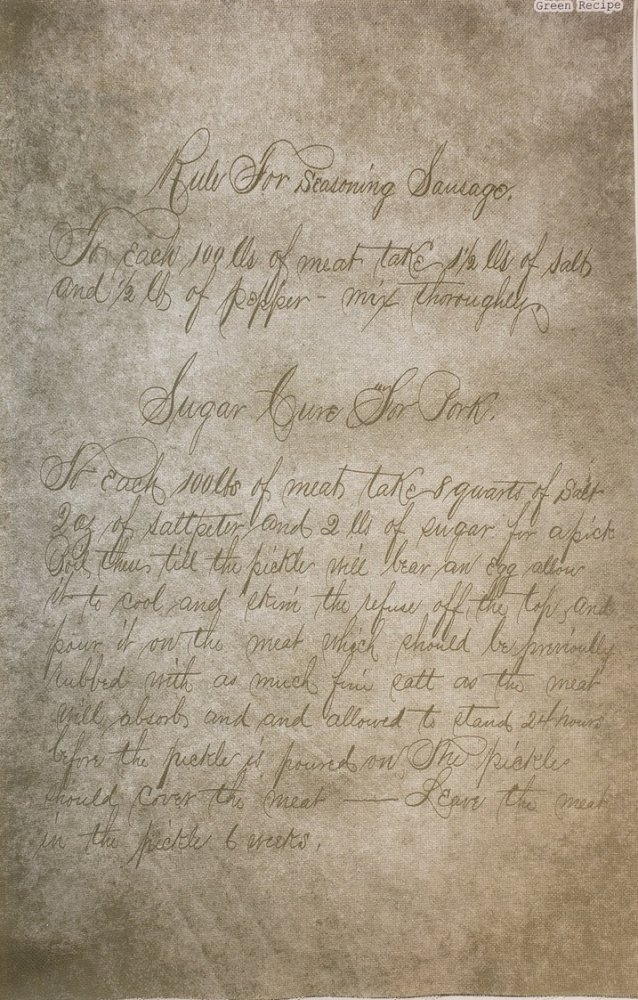 Green Recipe
Rule For Seasoning Sausage.
To Each 100 lbs of meat take 1½ lbs of salt
and ½ lb of pepper - mix thoroughly.
Sugar Cure For Pork.
To each 100 lbs of meat take 8 quarts of Salt
2 oz of saltpeter and 2 lbs of sugar for a pick
Boil thus till the pickle will bear an Egg allow
it to cool and skim the refuse off the top, and
pour it on the meat which should be previously
rubbed with as much fine salt as the meat
will absorb and and allowed to stand 24 hours
before the pickle is poured on, The pickle
should cover the meat — Leave the meat
in the pickle 6 weeks.